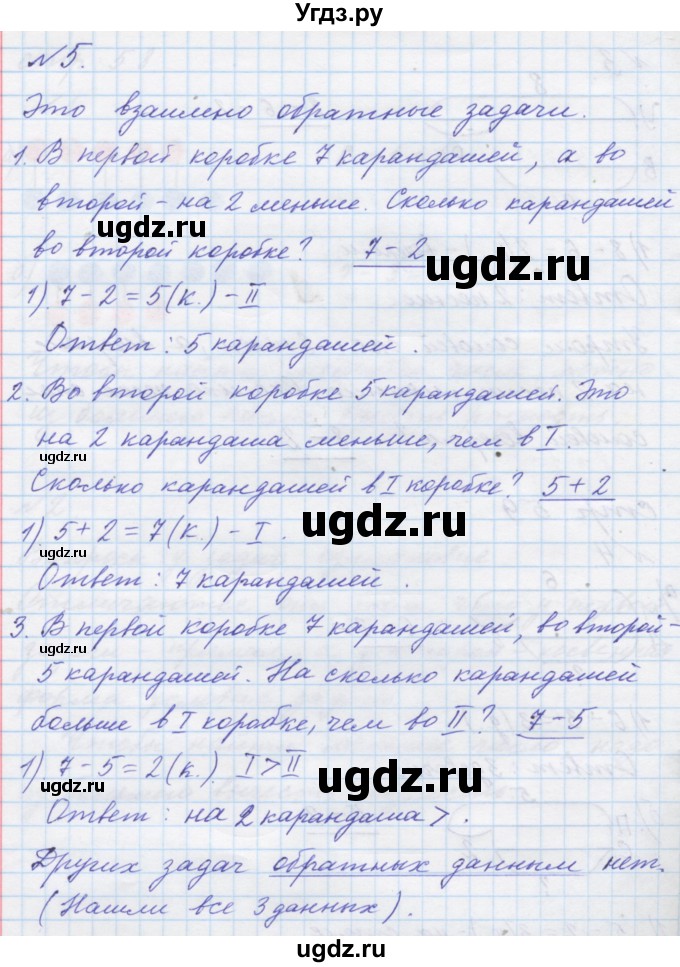 Угдз.ру
№5.
Это взаимно обратные задачи.
1. В первой коробке 7 карандашей, а во
второй - на 2 меньше. Сколько карандашей
угдз.ру
во второй коробке? 7-2
угдз.ру
1) 7-2=5(к.) - II
Ответ: 5 карандашей.
2. Во второй коробке 5 карандашей. Это
на 2 карандаша меньше, чем в I.
угдз.ру
Сколько карандашей в I коробке? 5+2
угдз.ру
1) 5+2=7(к.) - I.
Ответ: 7 карандашей.
3. В первой коробке 7 карандашей, во второй-
угдз.ру
5 карандашей. На сколько карандашей
больше в I коробке, чем во II? 7-5
1) 7-5=2(к.) I>II
угдз.ру
Ответ: на 2 карандаша >.
угдз.ру
Других задач обратных данным нет.
(Нашли все 3 данных).
угдз.ру